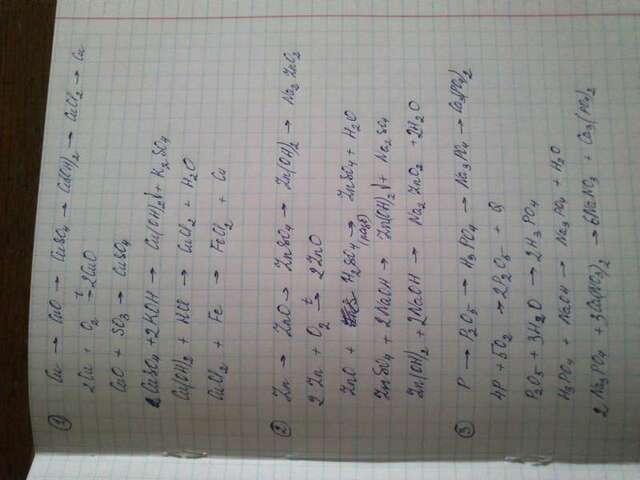 ① Cu → CuO → CuSO4 → Cu(OH)2 → CuCl2 → Cu
2Cu + O2 t→ 2CuO
CuO + SO3 → CuSO4
CuSO4 + 2KOH → Cu(OH)2↓ + K2SO4
Cu(OH)2 + HCl → CuCl2 + H2O
CuCl2 + Fe → FeCl2 + Cu
② Zn → ZnO → ZnSO4 → Zn(OH)2 → Na2ZnO2
2Zn + O2 t→ 2ZnO
ZnO + H2SO4 → ZnSO4 + H2O
ZnSO4 + 2NaOH → Zn(OH)2↓ + Na2SO4
Zn(OH)2 + 2NaOH → Na2ZnO2 + 2H2O
③ P → P2O5 → H3PO4 → Na3PO4 → Ca3(PO4)2
4P + 5O2 → 2P2O5 + Q
P2O5 + 3H2O → 2H3PO4
H3PO4 + NaOH → Na3PO4 + H2O
2Na3PO4 + 3Ca(NO3)2 → 6NaNO3 + Ca3(PO4)2